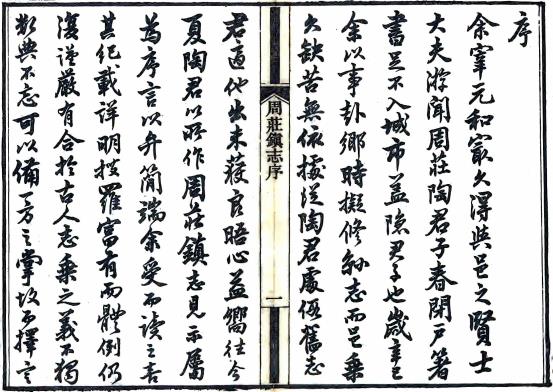 序
余宰元和最久得與邑之賢士
大夫游聞周莊陶君子春閉戶著
書足不入城市蓋隱君子也歲辛巳
余以事赴鄉時擬修縣志而邑乘
久缺苦無依據從陶君處假舊志
周莊鎮志序
一
君適他出未獲良晤心益嚮往今
夏陶君以所作周莊鎮志見示屬
為序言以弁簡端余受而讀之喜
其紀載詳明搜羅富有而體例仍
復謹嚴有合於古人志乘之義不獨
數典不忘可以備一方之掌故而擇言